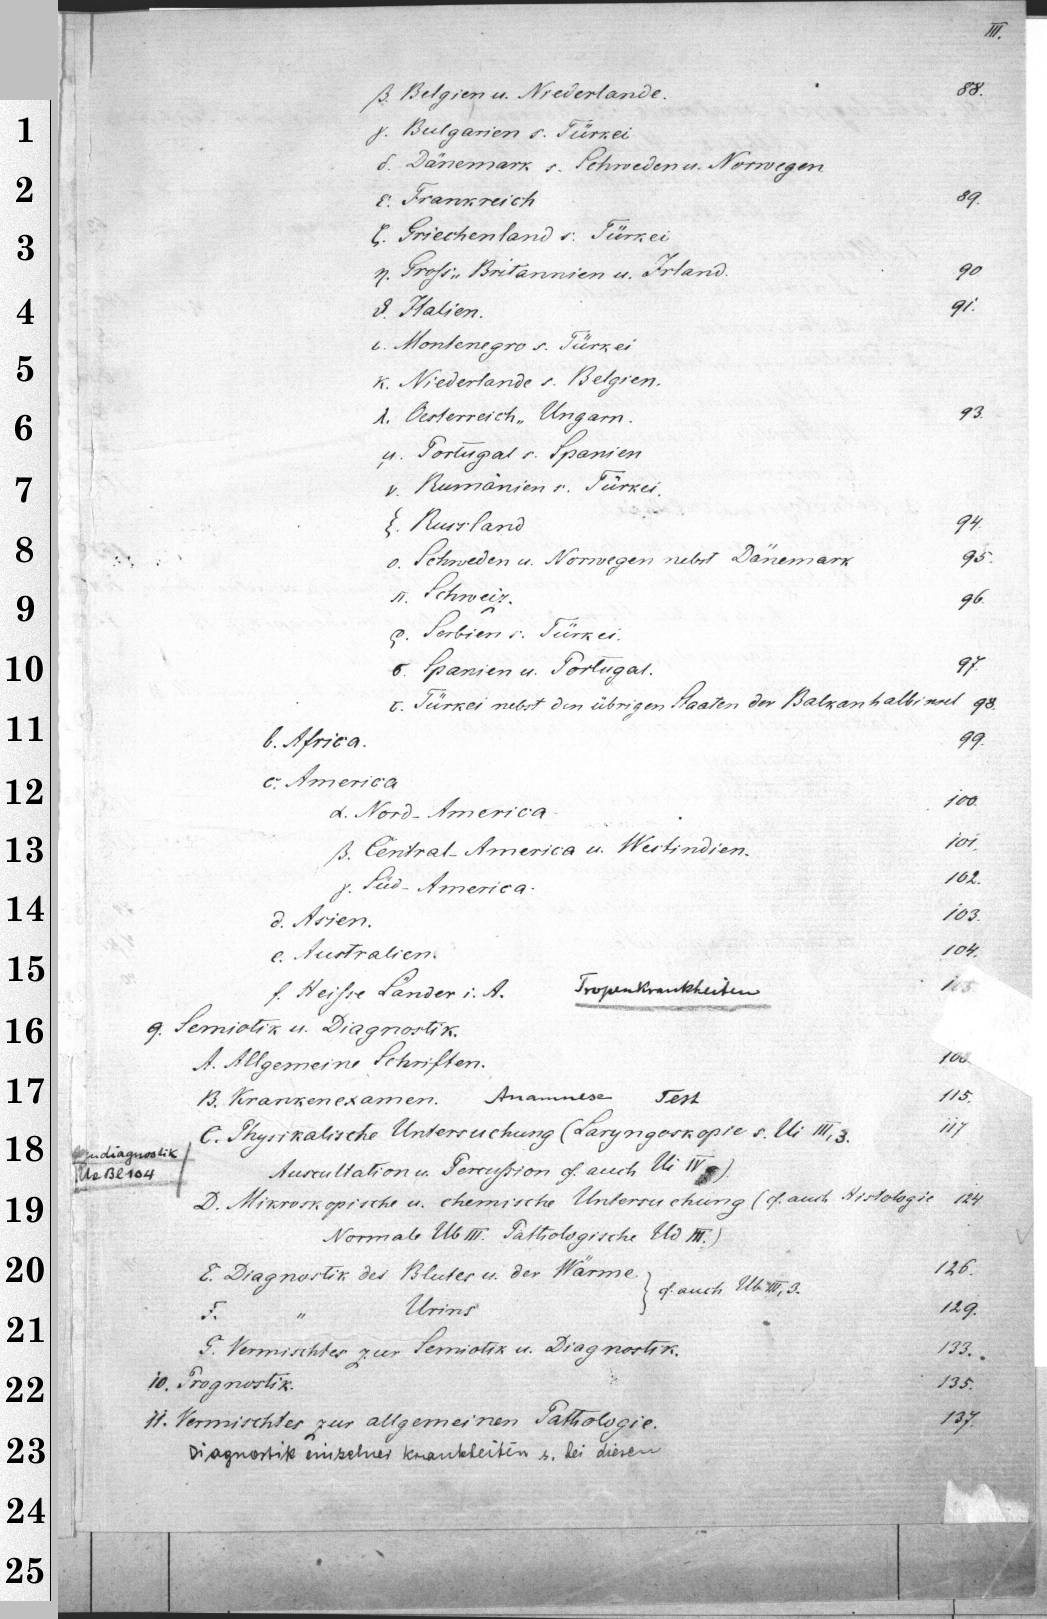 III.
β. Belgien u. Niederlande. 88.
γ. Bulgarien s. Türkei
δ. Dänemark s. Schweden u. Norwegen
ε. Frankreich 89.
ζ. Griechenland s. Türkei
η. Gross„ Britannien u. Irland. 90
ϑ. Italien. 91.
ι. Montenegro s. Türkei
κ. Niederlande s. Belgien.
λ. Oesterreich„ Ungarn. 93.
μ. Portugal s. Spanien
ν. Rumänien s. Türkei.
ξ. Russland 94.
ο. Schweden u. Norwegen nebst Dänemark 95.
π. Schweiz. 96.
ρ. Serbien s. Türkei.
σ. Spanien u. Portugal. 97.
τ. Türkei nebst den übrigen Staaten der Balkanhalbinsel 98.
b. Africa. 99.
c. America
α. Nord-America 100.
β. Central-America u. Westindien. 101.
γ. Süd-America. 102.
d. Asien. 103.
e. Australien. 104.
f. Heisse Länder i. A. Tropenkrankheiten 105.
9. Semiotik u. Diagnostik.
A. Allgemeine Schriften.
B. Krankenexamen. Anamnese Test 115.
C. Physikalische Untersuchung (Laryngoskopie s. Ui III, 3. 117
diagnostik
Ua Bl 104
Auscultation u. Percussion cf. auch Ui IV )
D. Mikroskopische u. chemische Untersuchung (cf. auch Histologie 124
Normale Ub III. Pathologische Ud III.)
E. Diagnostik des Blutes u. der Wärme } cf. auch Ub III, 3. 126.
F. „ Urins 129.
G. Vermischtes zur Semiotik u. Diagnostik. 133.
10. Prognostik. 135.
11. Vermischtes zur allgemeinen Pathologie. 137.
Diagnostik einzelner Krankheiten s. bei diesen
1
2
3
4
5
6
7
8
9
10
11
12
13
14
15
16
17
18
19
20
21
22
23
24
25